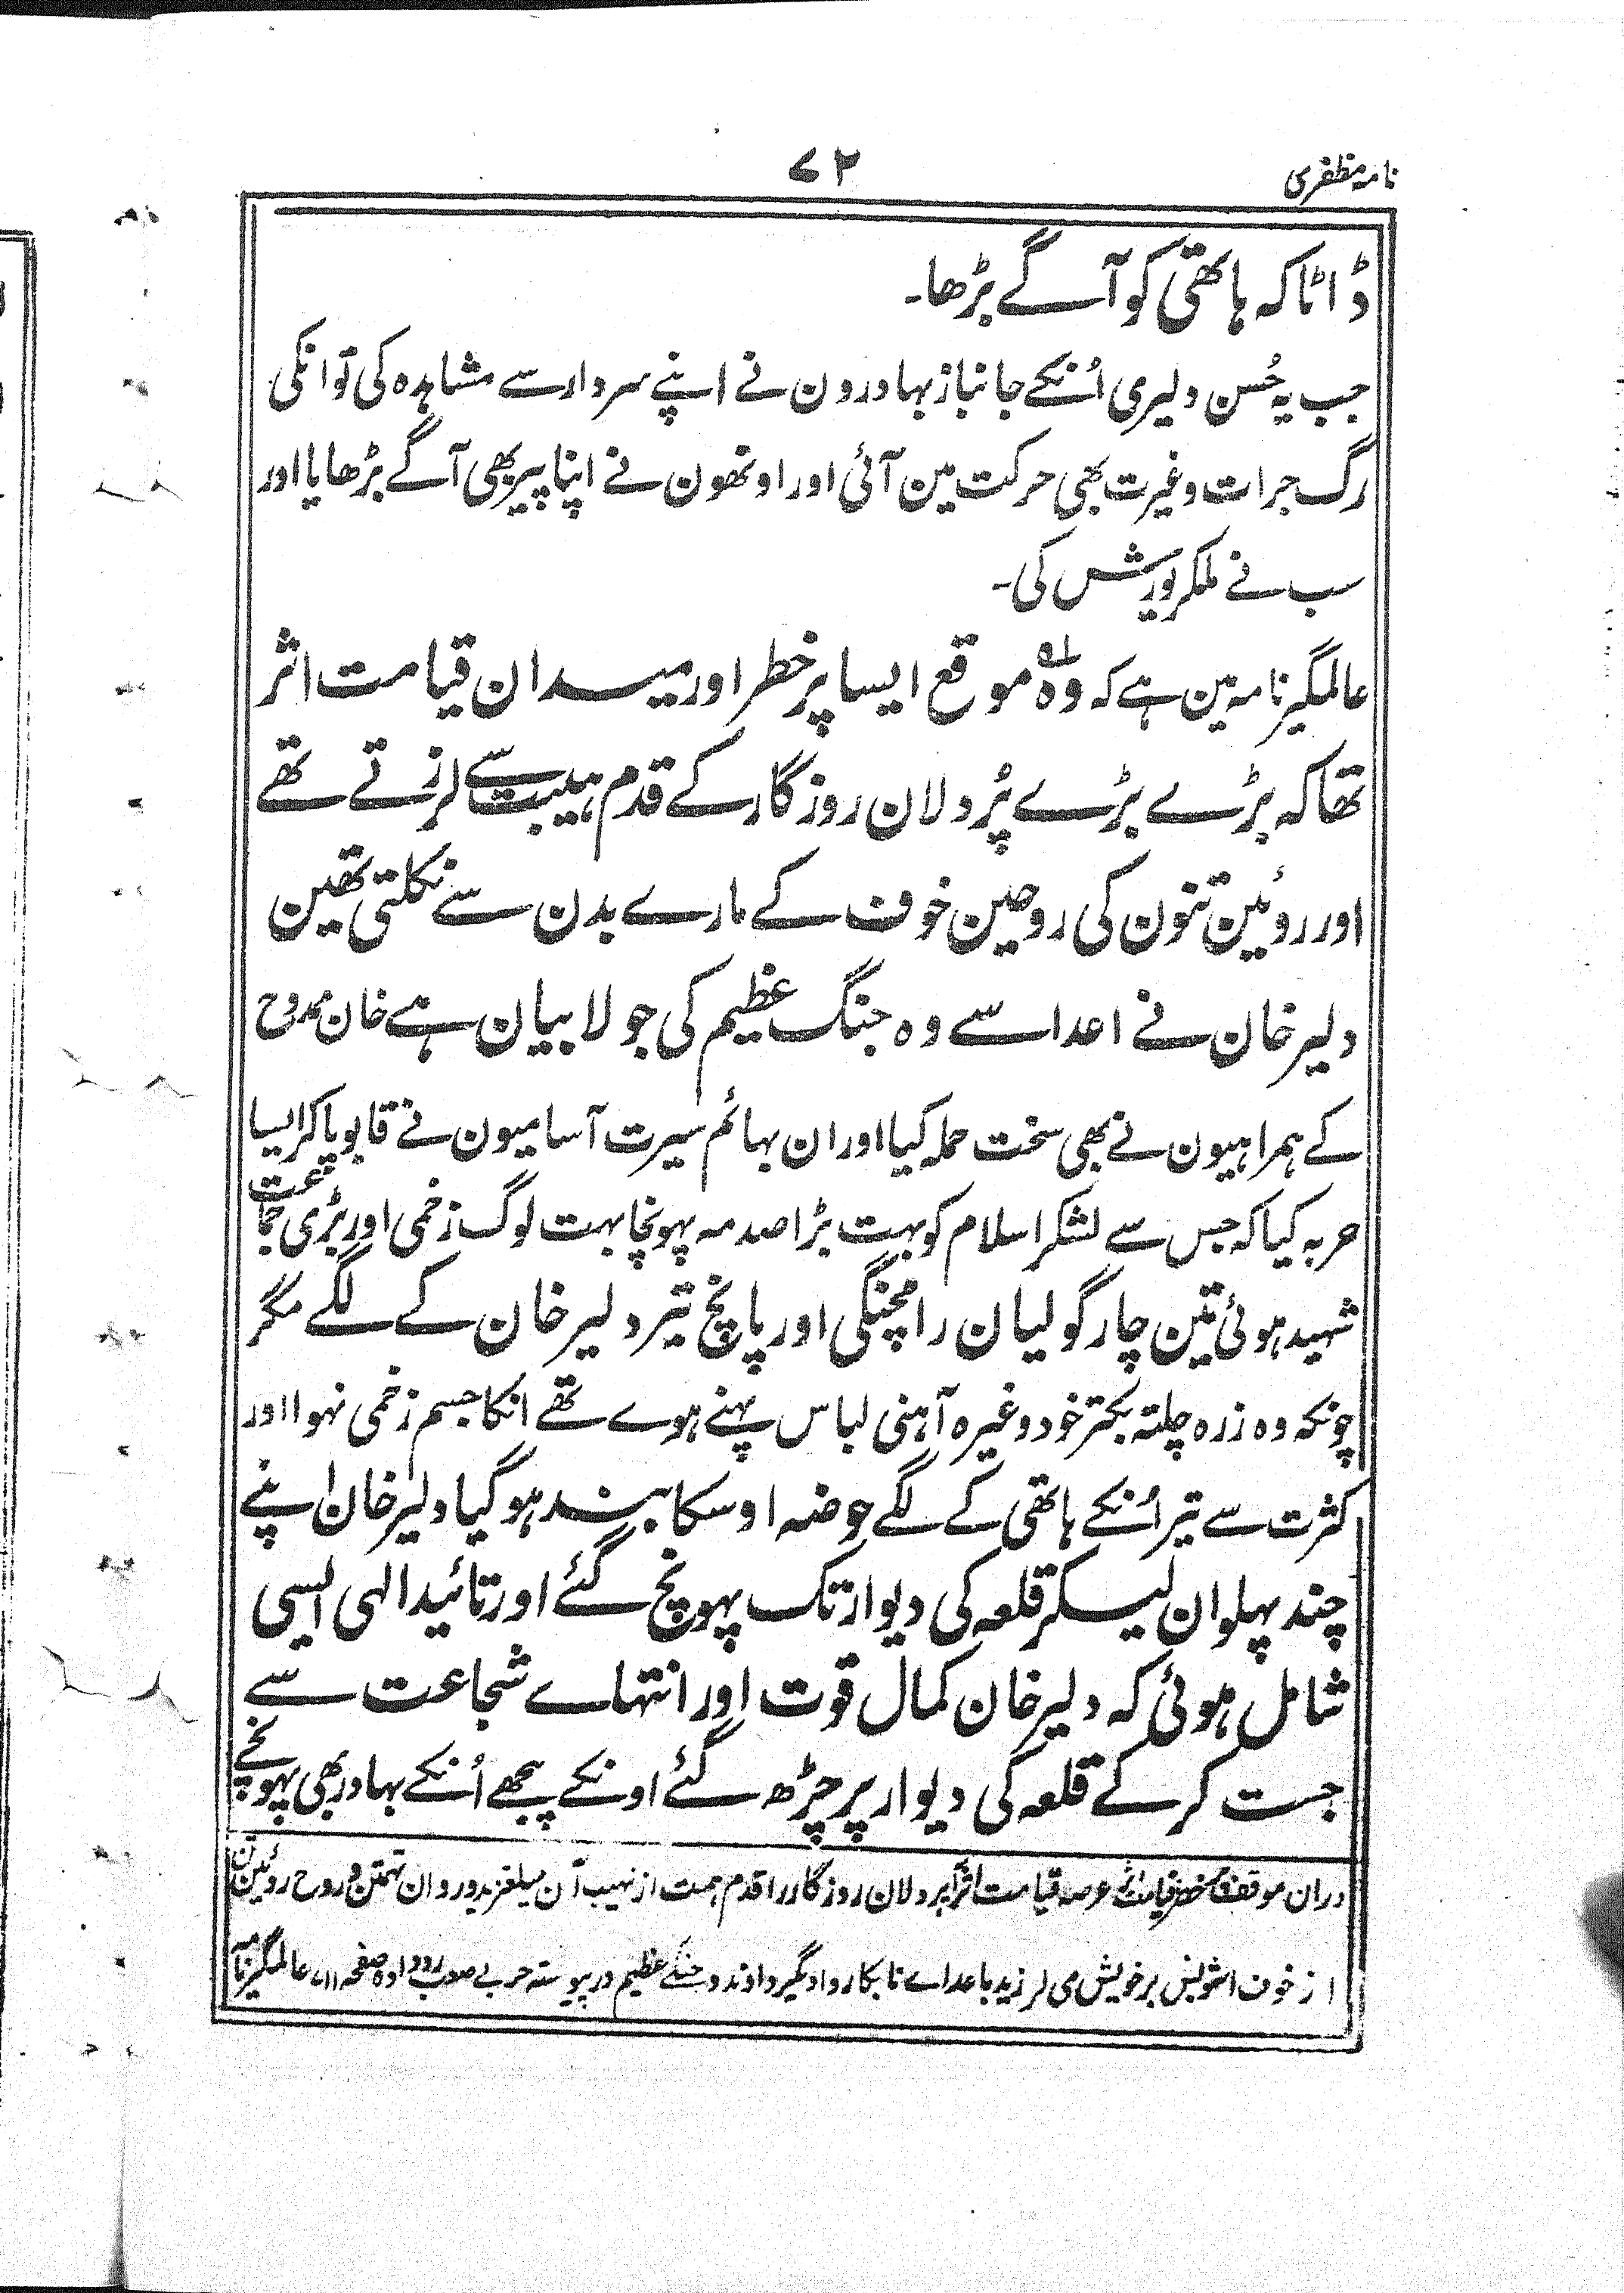 نامہ مظفری
۷۲
ڈاٹا کہ ہاتھی کو آگے بڑھا۔
جب یہ حُسن دلیری اُنکے جانباز بہادرون نے اپنے سردار سے مشاہدہ کی تو انکی
رگ جرات و غیرت بھی حرکت مین آئی اور اونھون نے اپنا پیر بھی آگے بڑھایا اور
سب نے ملکر یورش کی۔
عالمگیر نامہ مین ہے کہ وہ موقع ایسا پرخطر اور میدان قیامت اثر
تھا کہ بڑے بڑے پُردلان روزگار کے قدم ہیبت سے لرزتے تھے
اور روئین تنون کی روحین خوف کے مارے بدن سے نکلتی تھین
دلیر خان نے اعدا سے وہ جنگ عظیم کی جو لا بیان ہے خان ممدوح
کے ہمراہیون نے بھی سخت حملہ کیا اور ان بہائم سیرت آسامیون نے قابو پاکر ایسا
حربہ کیا کہ جس سے لشکر اسلام کو بہت بڑا صدمہ پہونچا بہت لوگ زخمی اور بڑی جماعت
شہید ہوئی تین چار گولیان رامچنگی اور پانچ تیر دلیر خان کے لگے مگر
چونکہ وہ زرہ چلتہ بکتر خود وغیرہ آہنی لباس پہنے ہوے تھے انکا جسم زخمی نہوا اور
کثرت سے تیر اُنکے ہاتھی کے لگے حوضہ اوسکا بند ہوگیا دلیر خان اپنے
چند پہلوان لیکر قلعہ کی دیوار تک پہونچ گئے اور تائید الہی ایسی
شامل ہوئی کہ دلیر خان کمال قوت اور انتہاے شجاعت سے
جست کرکے قلعہ کی دیوار پر چڑھ گئے اونکے پیچھے اُنکے بہادر بھی پہونچے
دران موقف عرصہ قیامت اثر پردلان روزگار را قدم ہمت از نہیب آن میلغزید و روان تہمتن و روح روئین تن
از خوف بر خویش می لرزید با اعداے نابکار داد گیر دادند و جنگے عظیم در پیوستہ حربے صعب روداد صفحہ ۷۱۱ عالمگیر نامہ